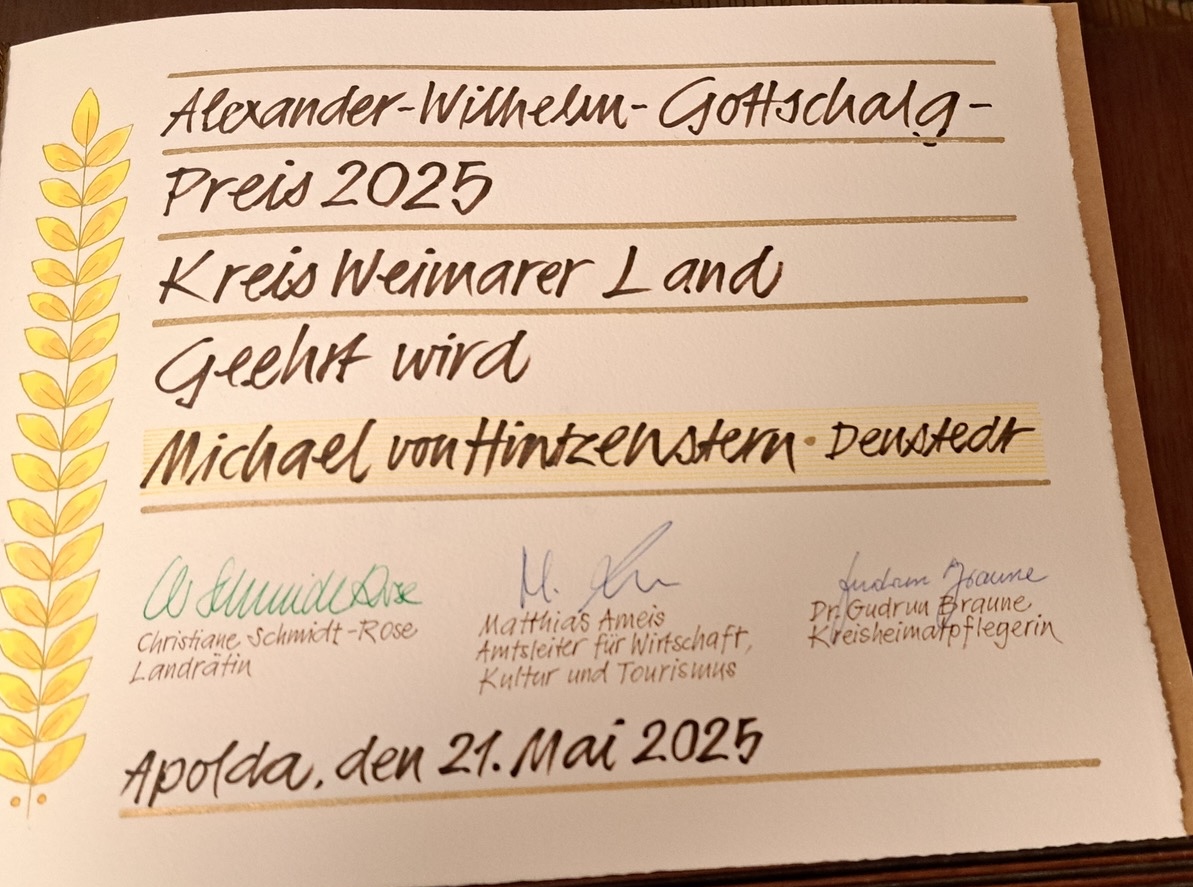 Alexander-Wilhelm-Gottschalg-
Preis 2025
Kreis Weimarer Land
Geehrt wird
Michael von Hintzenstern · Denstedt
Ch Schmidt-Rose
M. Ameis
Gudrun Braune
Christiane Schmidt-Rose
Landrätin
Matthias Ameis
Amtsleiter für Wirtschaft,
Kultur und Tourismus
Dr. Gudrun Braune
Kreisheimatpflegerin
Apolda, den 21. Mai 2025